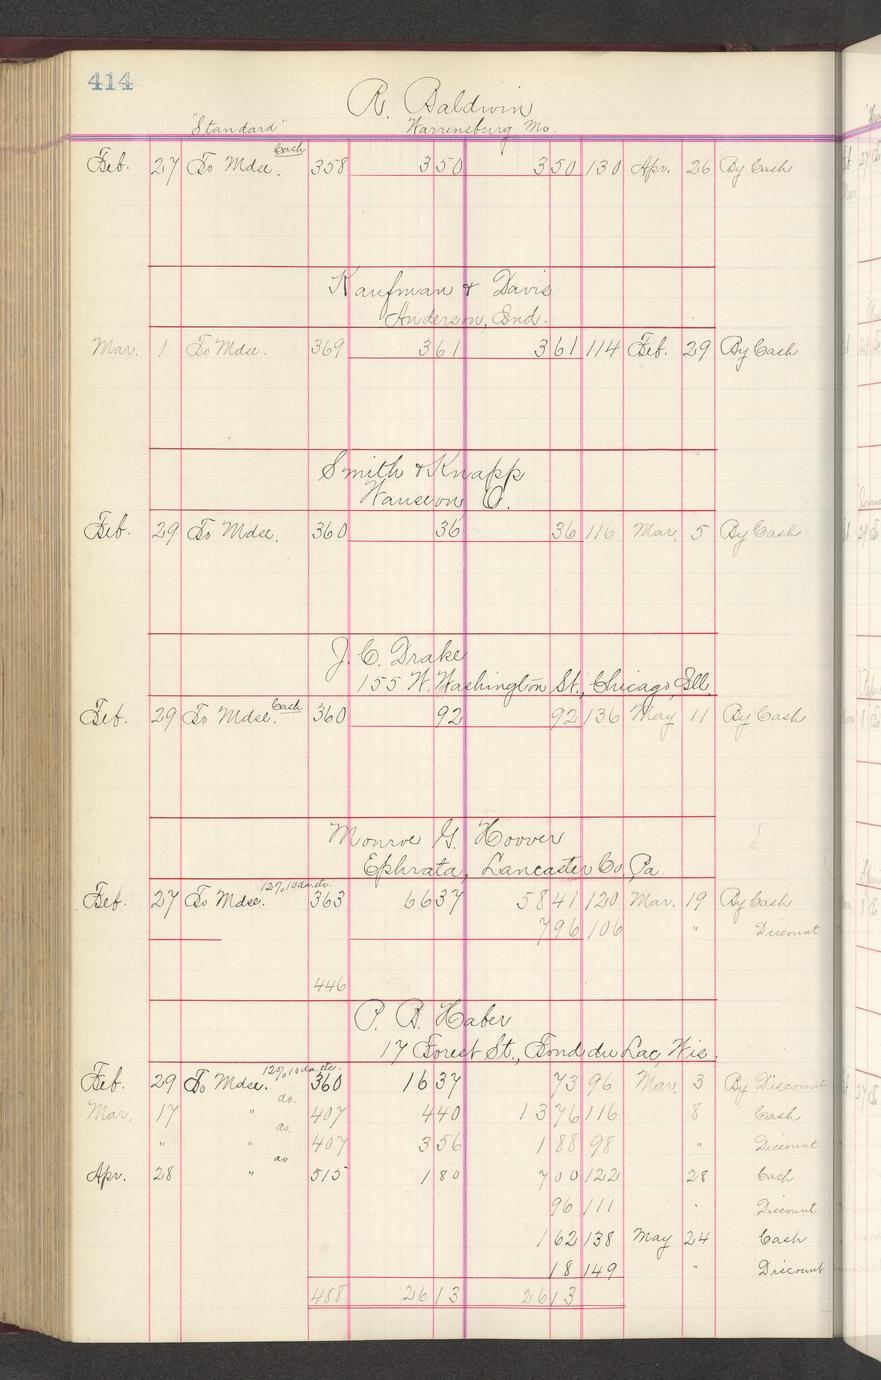 414
R. Baldwin
"Standard" Warrensburg, Mo.
Cash
Feb. 27 To Mdse. 358 3 50 3 50 130 Apr. 26 By Cash
Kaufman & Davis
Anderson, Ind.
Mar. 1 To Mdse. 369 3 61 3 61 114 Feb. 29 By Cash
Smith & Knapp
Wauseon O.
Feb. 29 To Mdse. 360 36 36 116 Mar. 5 By Cash
J. C. Drake
155 W. Washington St., Chicago, Ill.
Cash
Feb. 29 To Mdse. 360 92 92 136 May 11 By Cash
Monroe G. Hoover
Ephrata, Lancaster Co. Pa.
12% 10 da. etc.
Feb. 27 To Mdse. 363 66 37 58 41 120 Mar. 19 By Cash
7 96 106 " Discount
446
P. B. Haber
17 Forest St., Fond du Lac, Wis.
12% 10 da. etc.
Feb. 29 To Mdse. 360 16 37 73 96 Mar. 3 By Discount
do.
Mar. 17 " 407 4 40 13 76 116 8 Cash
do.
" " " 407 3 56 1 88 98 " Discount
do
Apr. 28 " 515 1 80 7 00 122 28 Cash
96 111 " Discount
1 62 138 May 24 Cash
18 149 " Discount
488 26 13 26 13